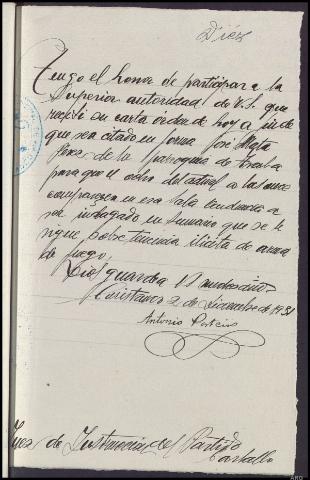 Diéz
Tengo el honor de participar a la
Superior autoridad de V.S. que
recibí su carta orden de hoy a fin de
que sea citado en forma José Mata
Perez de la parroquia de
para que el ocho del actual a las once
comparezca en esa Sala Audiencia a
ser indagado en sumario que se le
sigue sobre tenencia ilícita de arma
de fuego.
Dios guarde a V.S. muchos años
Coristanco 2 de Diciembre de 1931
Antonio
Juez de Instrucción del Partido
Carballo